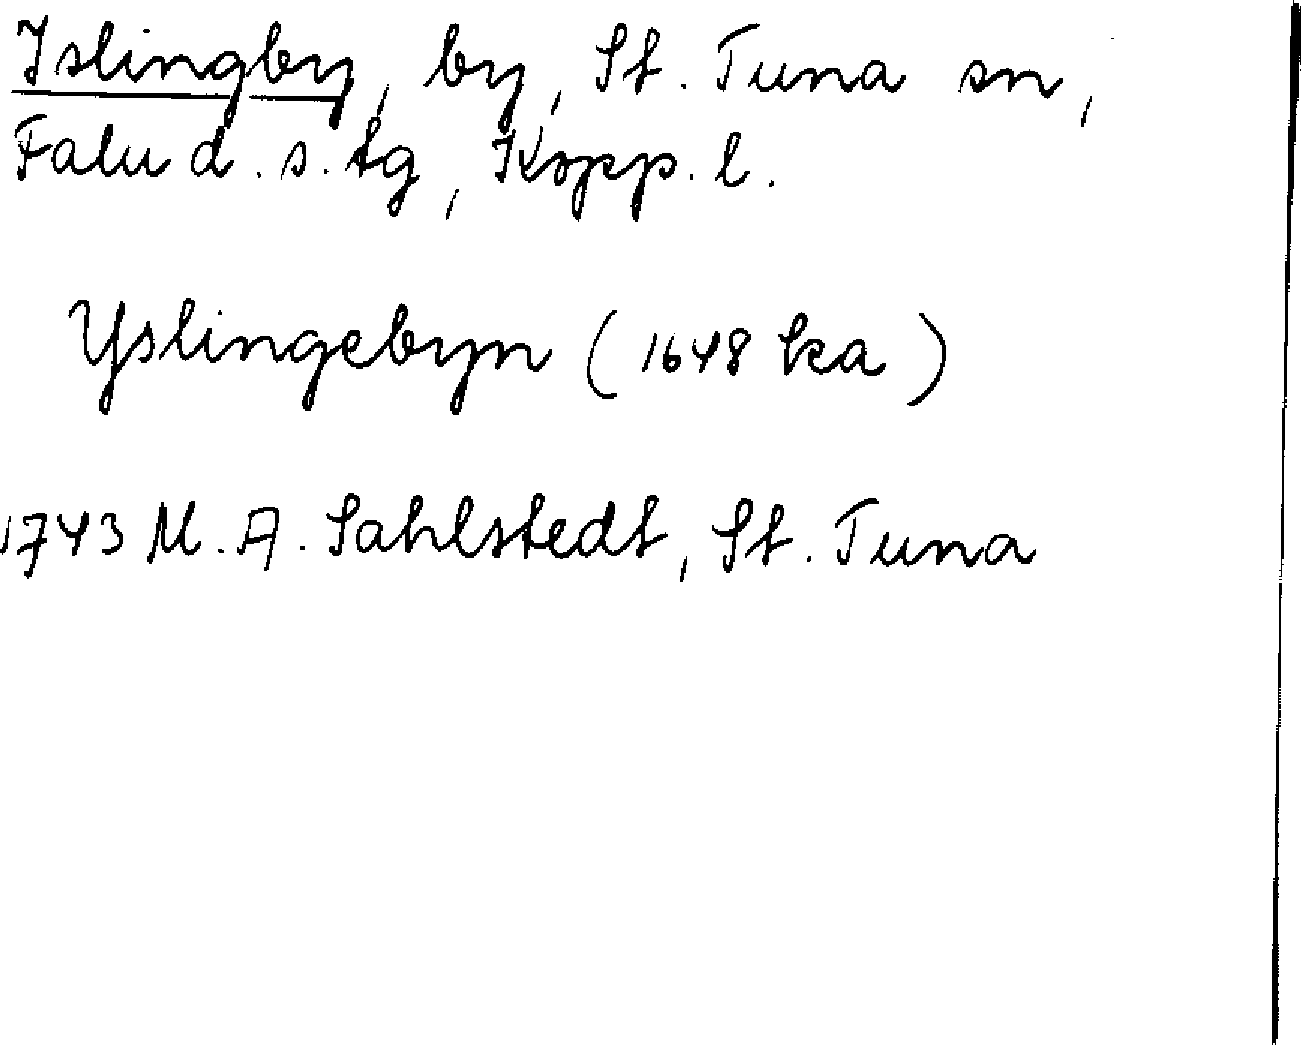 Islingby, by, St. Tuna sn,
Falu d. s. tg, Kopp. l.
Yslingebyn (1648 ka)
1743 M. A. Sahlstedt, St. Tuna